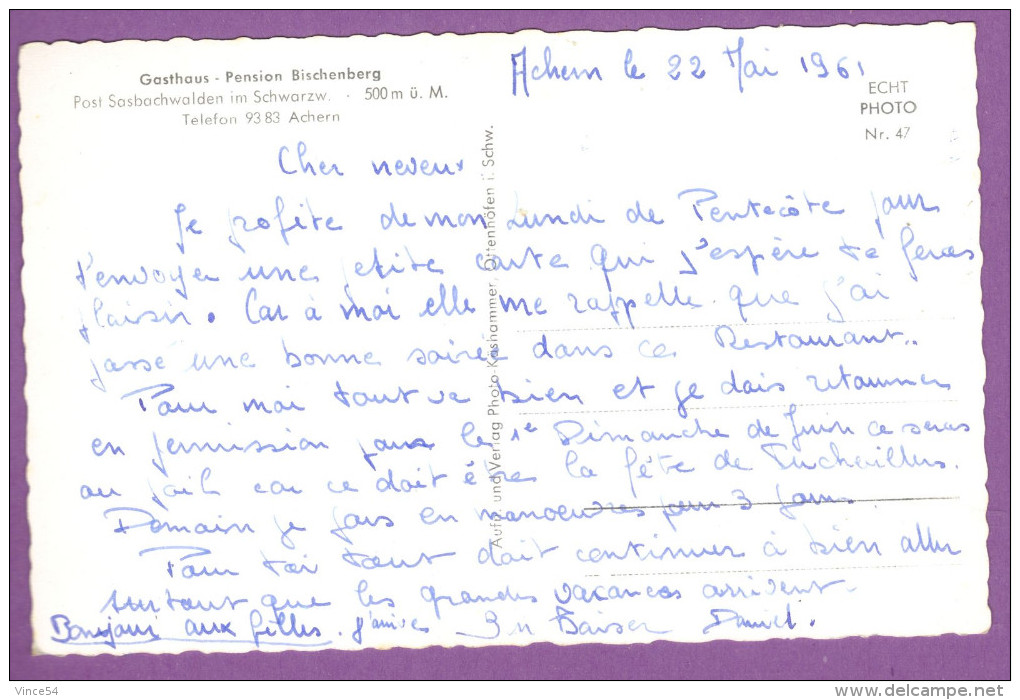 Gasthaus - Pension Bischenberg
Post Sasbachwalden im Schwarzw. · 500 m ü. M.
Telefon 93 83 Achern
Achern le 22 Mai 1961
ECHT
PHOTO
Nr. 47
Aufn. und Verlag Photo-Kashammer, Ottenhöfen i. Schw.
Cher neveux
Je profite de mon Lundi de Pentecôte pour
t'envoyer une petite carte qui j'espère te feras
plaisir. Car à moi elle me rappelle que j'ai
passé une bonne soirée dans ce Restaurant..
Pour moi tout va bien et je dois retourner
en permission pour le 1e Dimanche de Juin ce seras
au poil car ce doit être la fête de
Demain je pars en manoeuvres pour 3 jours
Pour toi tout doit continuer à bien aller
surtout que les grandes vacances arrivent.
Bonjour aux filles. j'arrive Bn Baiser Daniel.
Vince54
http://www.delcampe.net